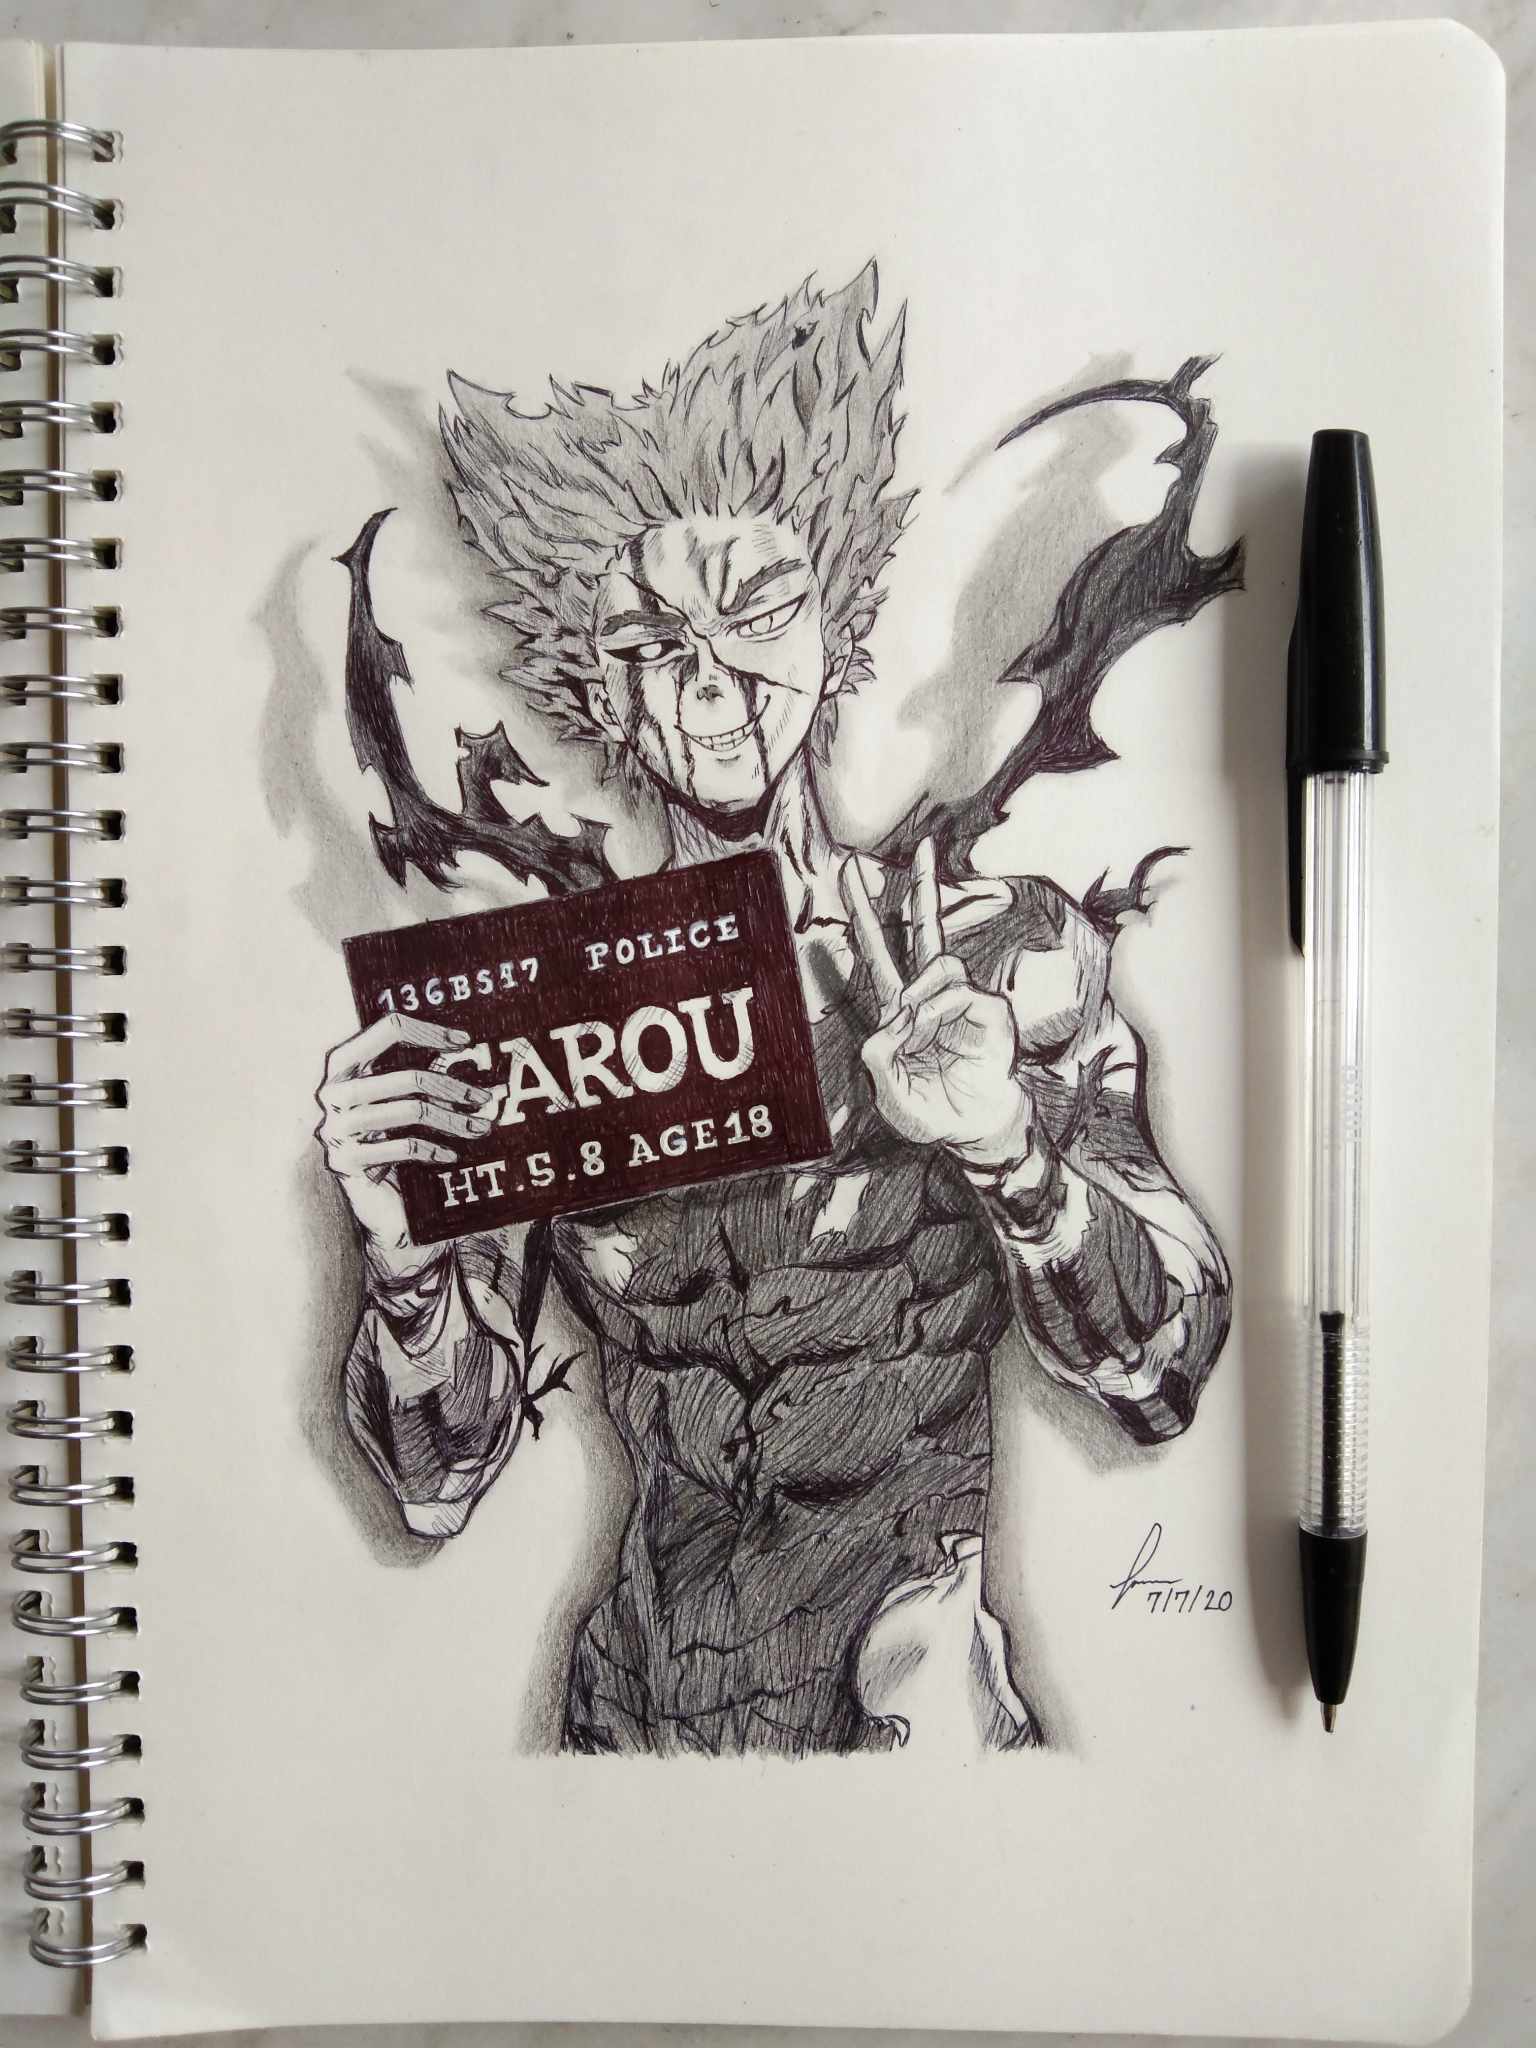 136BS17 POLICE
GAROU
HT.5.8 AGE18
7/7/20